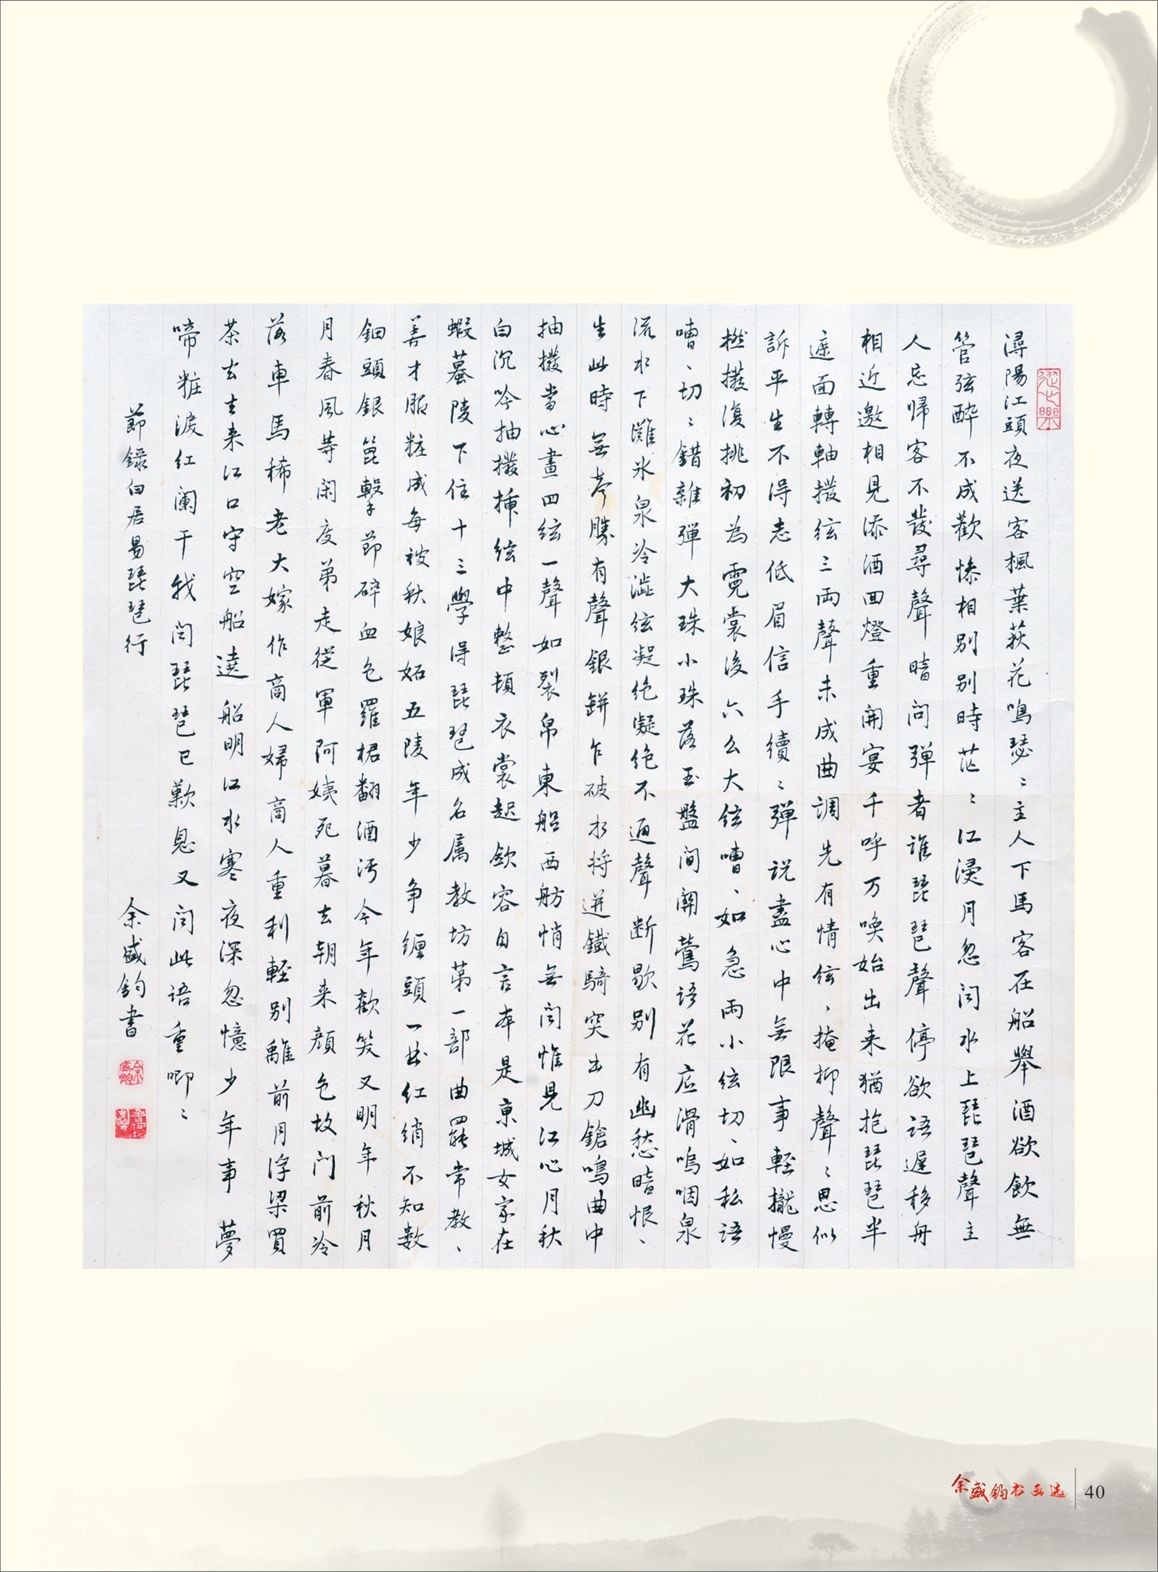 潯陽江頭夜送客楓葉荻花鳴瑟〻主人下馬客在船舉酒欲飲無
管弦醉不成歡慘相別別時茫〻江浸月忽闻水上琵琶聲主
人忘歸客不發尋聲暗问彈者誰琵琶聲停欲语遲移舟
相近邀相見添酒回燈重開宴千呼万喚始出来猶抱琵琶半
遮面轉軸撥絃三兩聲未成曲調先有情絃、掩抑聲〻思似
訴平生不得志低眉信手續〻彈说盡心中無限事輕攏慢
撚撥復挑初為霓裳後六幺大弦嘈、如急雨小弦切、如私語
嘈、切〻錯雜彈大珠小珠落玉盤间關鶯语花底滑嗚咽泉
流水下灘冰泉冷澀弦凝绝凝绝不通聲断歇别有幽愁暗恨、
生此時無聲勝有聲銀缾乍破水将迸鐵騎突出刀鎗鳴曲中
抽撥當心畫四絃一聲如裂帛東船西舫悄無闻惟見江心月秋
白沉吟抽撥插絃中整顿衣裳起歛容自言本是京城女家在
蝦蟇陵下住十三學得琵琶成名属教坊苐一部曲罷常教、
善才服粧成每被秋娘妬五陵年少争缠頭一曲红绡不知數
鈿頭銀篦擊節碎血色羅裙翻酒汚今年歡笑又明年秋月
月春風等闲度弟走從軍阿姨死暮去朝来顔色故门前冷
落車馬稀老大嫁作商人婦商人重利輕别離前月浮梁買
茶去去来江口守空船遶船明江水寒夜深忽憶少年事夢
啼粧淚红阑干我闻琵琶已歎息又闻此语重唧〻
節錄白居易琵琶行
余盛鈞書
余盛鈞书画选
40